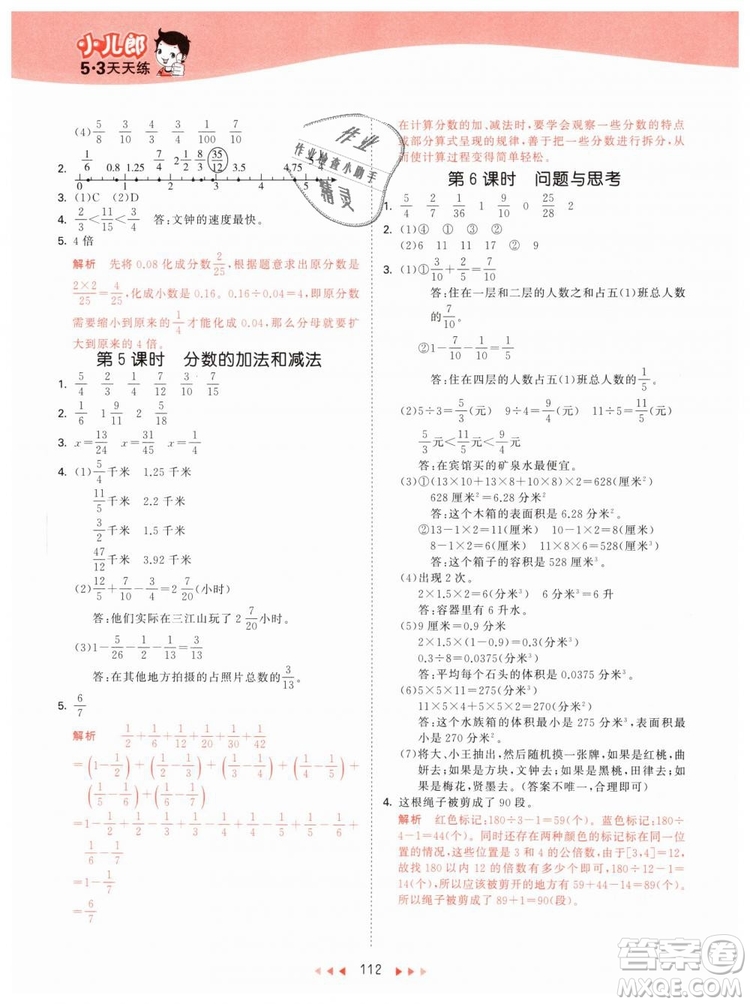 小儿郎
5·3天天练
(4) 5/8 3/10 3/4 5/9
2. 1/6 0.8 1.25 7/4 2 1/8 2.8 35/12 3.125 4.75 5
0 1 2 3 4 5
3. (1)C (2)D
4. 2/3<11/15<4/5 答:文钟的速度最快。
5. 4 倍
解析 先将 0.08 化成分数 2/25,根据题意求出原分数是
2×2/25=4/25,化成小数是 0.16。0.16÷0.04=4,即原分数
需要缩小到原来的 1/4 才能化成 0.04,那么分母就要扩
大到原来的 4 倍。
第 5 课时 分数的加法和减法
1. 5/4 4/9 1/4 7/12 3/10 7/15
2. 1/6 1 9/11 2 1/2
3. x=13/24 x=31/45 x=4/9
4. (1) 5/4 千米 1.25 千米
11/5 千米 2.2 千米
3/2 千米 1.5 千米
47/12 千米 3.92 千米
(2) 11/12+5/6+3/5=2 7/20(小时)
答:他们实际在三江山玩了 2 7/20 小时。
(3)1-5/26-1/2-1/13=3/13
答:在其他地方拍摄的占照片总数的 3/13。
5. 6/7
解析 1/2+1/6+1/12+1/20+1/30+1/42
=(1-1/2)+(1/2-1/3)+(1/3-1/4)+(1/4-1/5)+
(1/5-1/6)+(1/6-1/7)
=1-1/2+1/2-1/3+1/3-1/4+1/4-1/5+1/5-
1/6+1/6-1/7
=1-1/7
=6/7
在计算分数的加、减法时,要学会观察一些分数的特点
或部分算式呈现的规律,善于把一些分数进行变换,
使计算过程变得简单轻松。
第 6 课时 问题与思考
1. 5/4 2/7 1/36 1 9/10 25/8 2
2. (1)④ ③ ④
(2)6 11 17 11
3. (1)①3/10+2/5=7/10
答:住在一层和二层的人数之和占五(1)班总人数
的 7/10。
②1-7/10-1/5=1/10
答:住在四层的人数占五(1)班总人数的 1/10。
(2)5÷3=5/3(元) 9÷4=9/4(元) 11÷5=11/5(元)
5/3元<11/5元<9/4元
答:在宾馆买的矿泉水最便宜。
(3)①(13×10+13×8+10×8)×2=628(厘米²)
628 厘米²=6.28 分米²
答:这个木箱的表面积是 6.28 分米²。
②13-1×2=11(厘米) 10-1×2=8(厘米)
8-1×2=6(厘米) 11×8×6=528(厘米³)
答:这个箱子的容积是 528 厘米³。
(4)出现 2 次。
2×1.5×2=6(分米³) 6 分米³=6 升
答:容器里有 6 升水。
(5)9 厘米=0.9 分米
2×1.5×(1-0.9)=0.3(分米³)
0.3÷8=0.0375(分米³)
答:平均每个石头的体积是 0.0375 分米³。
(6)11×5×5=275(分米³)
11×5×4+5×5×2=270(分米²)
答:这个水族箱的容积是 275 分米³,制作这个水
族箱至少需要 270 分米² 玻璃。
(7)将大、小王抽出,然后随机摸一张牌,如果是红桃,曲
妍去;如果是方块,文钟去;如果是黑桃,田律去;如果
是梅花,贤墨去。(答案不唯一)
4. 这根绳子被剪成了 90 段。
解析 红色标记:180÷3-1=59(个)。蓝色标记:180÷
4-1=44(个)。同时还存在两种颜色的标记标在同一位
置的情况,这些位置是 3 和 4 的公倍数,由于[3,4]=12,
故找 180 以内 12 的倍数有 180÷12-1=14(个)。
所以应该被剪开的地方有 59+44-14=89(个)。
所以绳子被剪成了 89+1=90(段)。
作业
作业检查小助手
精灵
112
答案圈
MXQE.COM